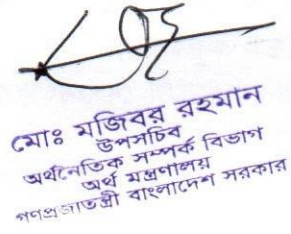 মোঃ মজিবর রহমান
উপসচিব
অর্থনৈতিক সম্পর্ক বিভাগ
অর্থ মন্ত্রণালয়
গণপ্রজাতন্ত্রী বাংলাদেশ সরকার